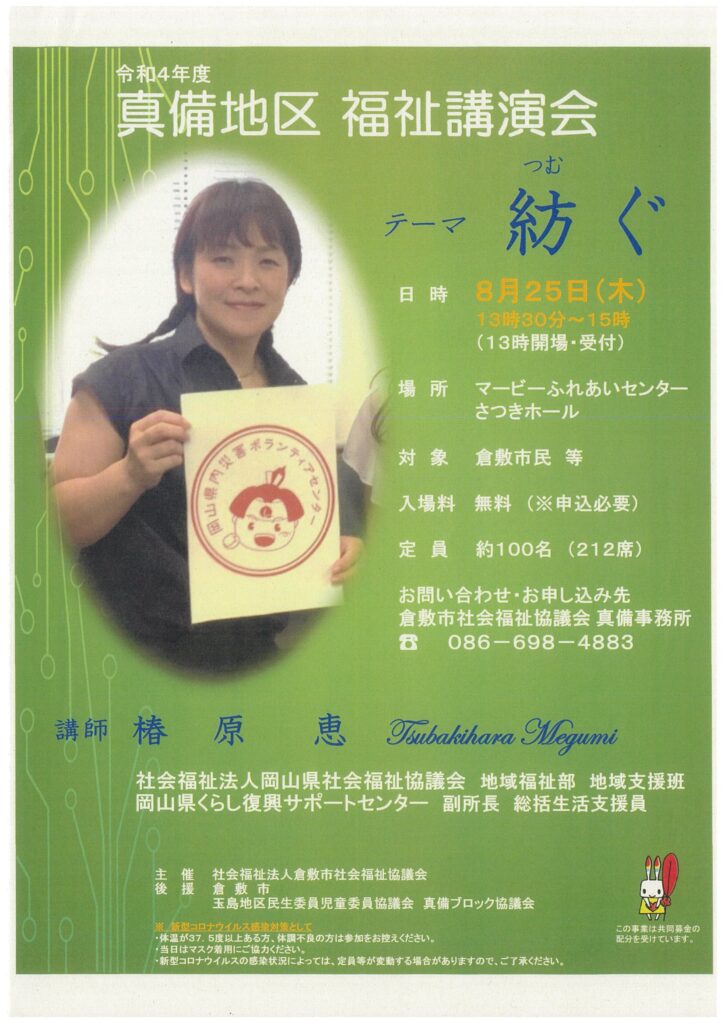 令和4年度
真備地区 福祉講演会
つむ
テーマ 紡ぐ
日時 8月25日(木)
13時30分～15時
(13時開場・受付)
場所 マービーふれあいセンター
さつきホール
対象 倉敷市民 等
入場料 無料 (※申込必要)
定員 約100名 (212席)
お問い合わせ・お申し込み先
倉敷市社会福祉協議会 真備事務所
☎ 086－698－4883
岡山県内災害ボランティアセンター
講師 椿原 恵 Tsubakihara Megumi
社会福祉法人岡山県社会福祉協議会 地域福祉部 地域支援班
岡山県くらし復興サポートセンター 副所長 総括生活支援員
主催 社会福祉法人倉敷市社会福祉協議会
後援 倉敷市
玉島地区民生委員児童委員協議会 真備ブロック協議会
※ 新型コロナウイルス感染対策として
・体温が37.5度以上ある方、体調不良の方は参加をお控えください。
・当日はマスク着用にご協力ください。
・新型コロナウイルスの感染状況によっては、定員等が変動する場合がありますので、ご了承ください。
この事業は共同募金の
配分を受けています。